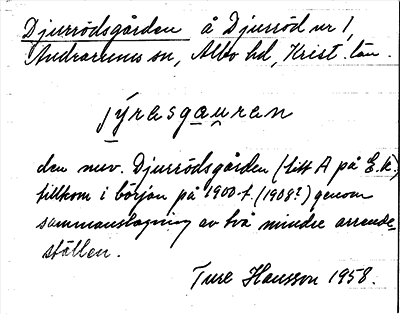 Djurrödsgården å Djurröd nr 1,
Andrarums sn, Albo hd, Krist. län.
jýrasgauran
den nuv. Djurrödsgården (litt A på E.k.)
tillkom i början på 1900-t. (1908?) genom
sammanslagning av två mindre arrende-
ställen.
Ture Hansson 1958.